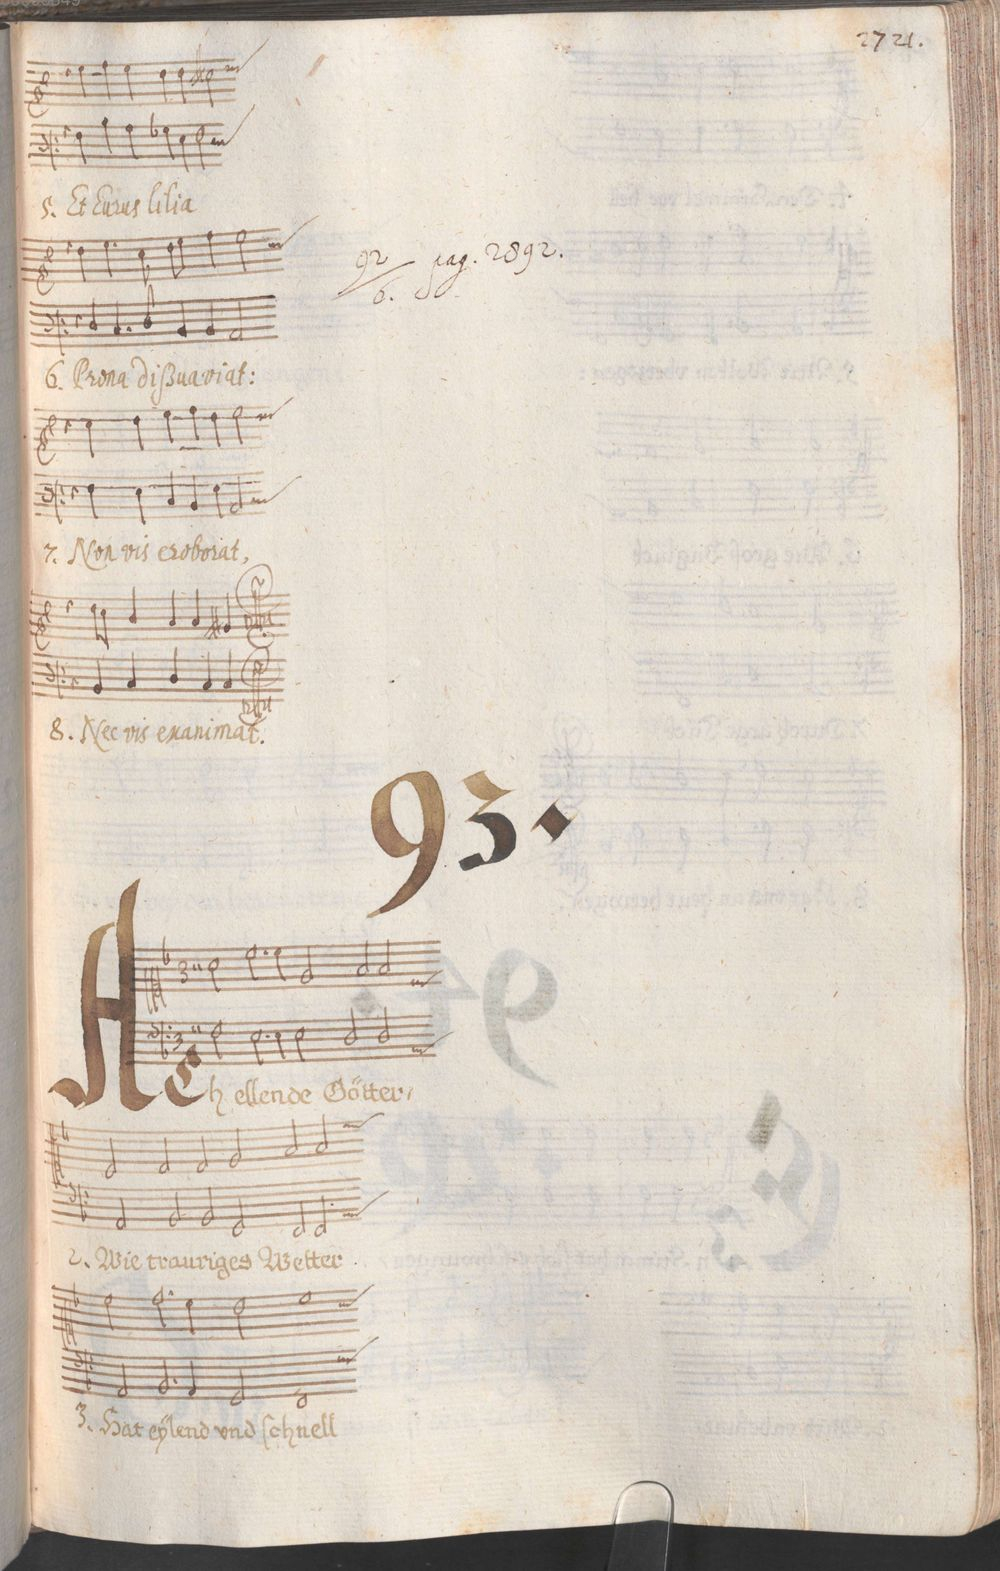 2721.
5. Et Eurus lilia
92 pag. 2892.
6.
6. Prona dißuaviat:
7. Non vis eroborat,
8. Nec vis exanimat.
93.
ACh ellende Götter/
2. Wie trauriges Wetter
3. Hat eÿlend vnd schnell